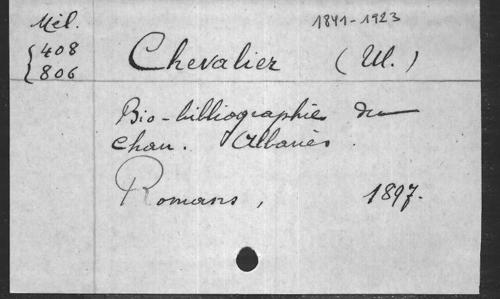 Mél. 1841-1923
{408 Chevalier (Ul.)
{806
Bio-bibliographie du
chan. Albanès.
Romans, 1897.